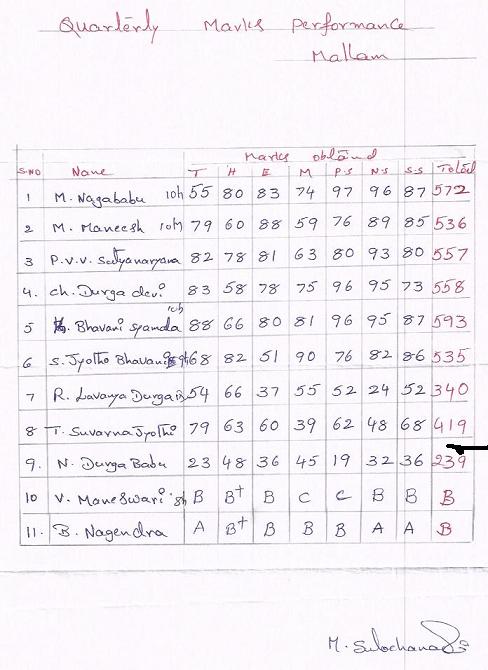 Quarterly Marks performance
Mallam
Marks obtaind
S.NO Name T H E M P.S N.S S.S Total
1 M. Nagababu 10h 55 80 83 74 97 96 87 572
2 M. Maneesh 10M 79 60 88 59 76 89 85 536
3 P.V.V. Satyanaryana 82 78 81 63 80 93 80 557
4. Ch. Durga devi 83 58 78 75 96 95 73 558
5 Bhavani syamala 10h 88 66 80 81 96 95 87 593
6 S. Jyothi Bhavani 9th 68 82 51 90 76 82 86 535
7 R. Lavanya Durga 54 66 37 55 52 24 52 340
8 T. Suvarna Jyothi 79 63 60 39 62 48 68 419
9. N. Durga Babu 23 48 36 45 19 32 36 239
10 V. Maneswari 8h B B+ B C C B B B
11. B. Nagendra A B+ B B B A A B
M. Sulochana